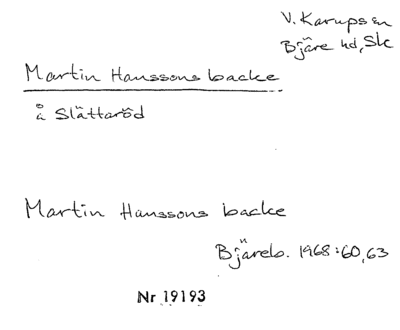 V. Karups sn
Bjäre hd, Sk
Martin Hanssons backe
å Slättaröd
Martin Hanssons backe
Bjäreb. 1968:60,63
Nr 19193